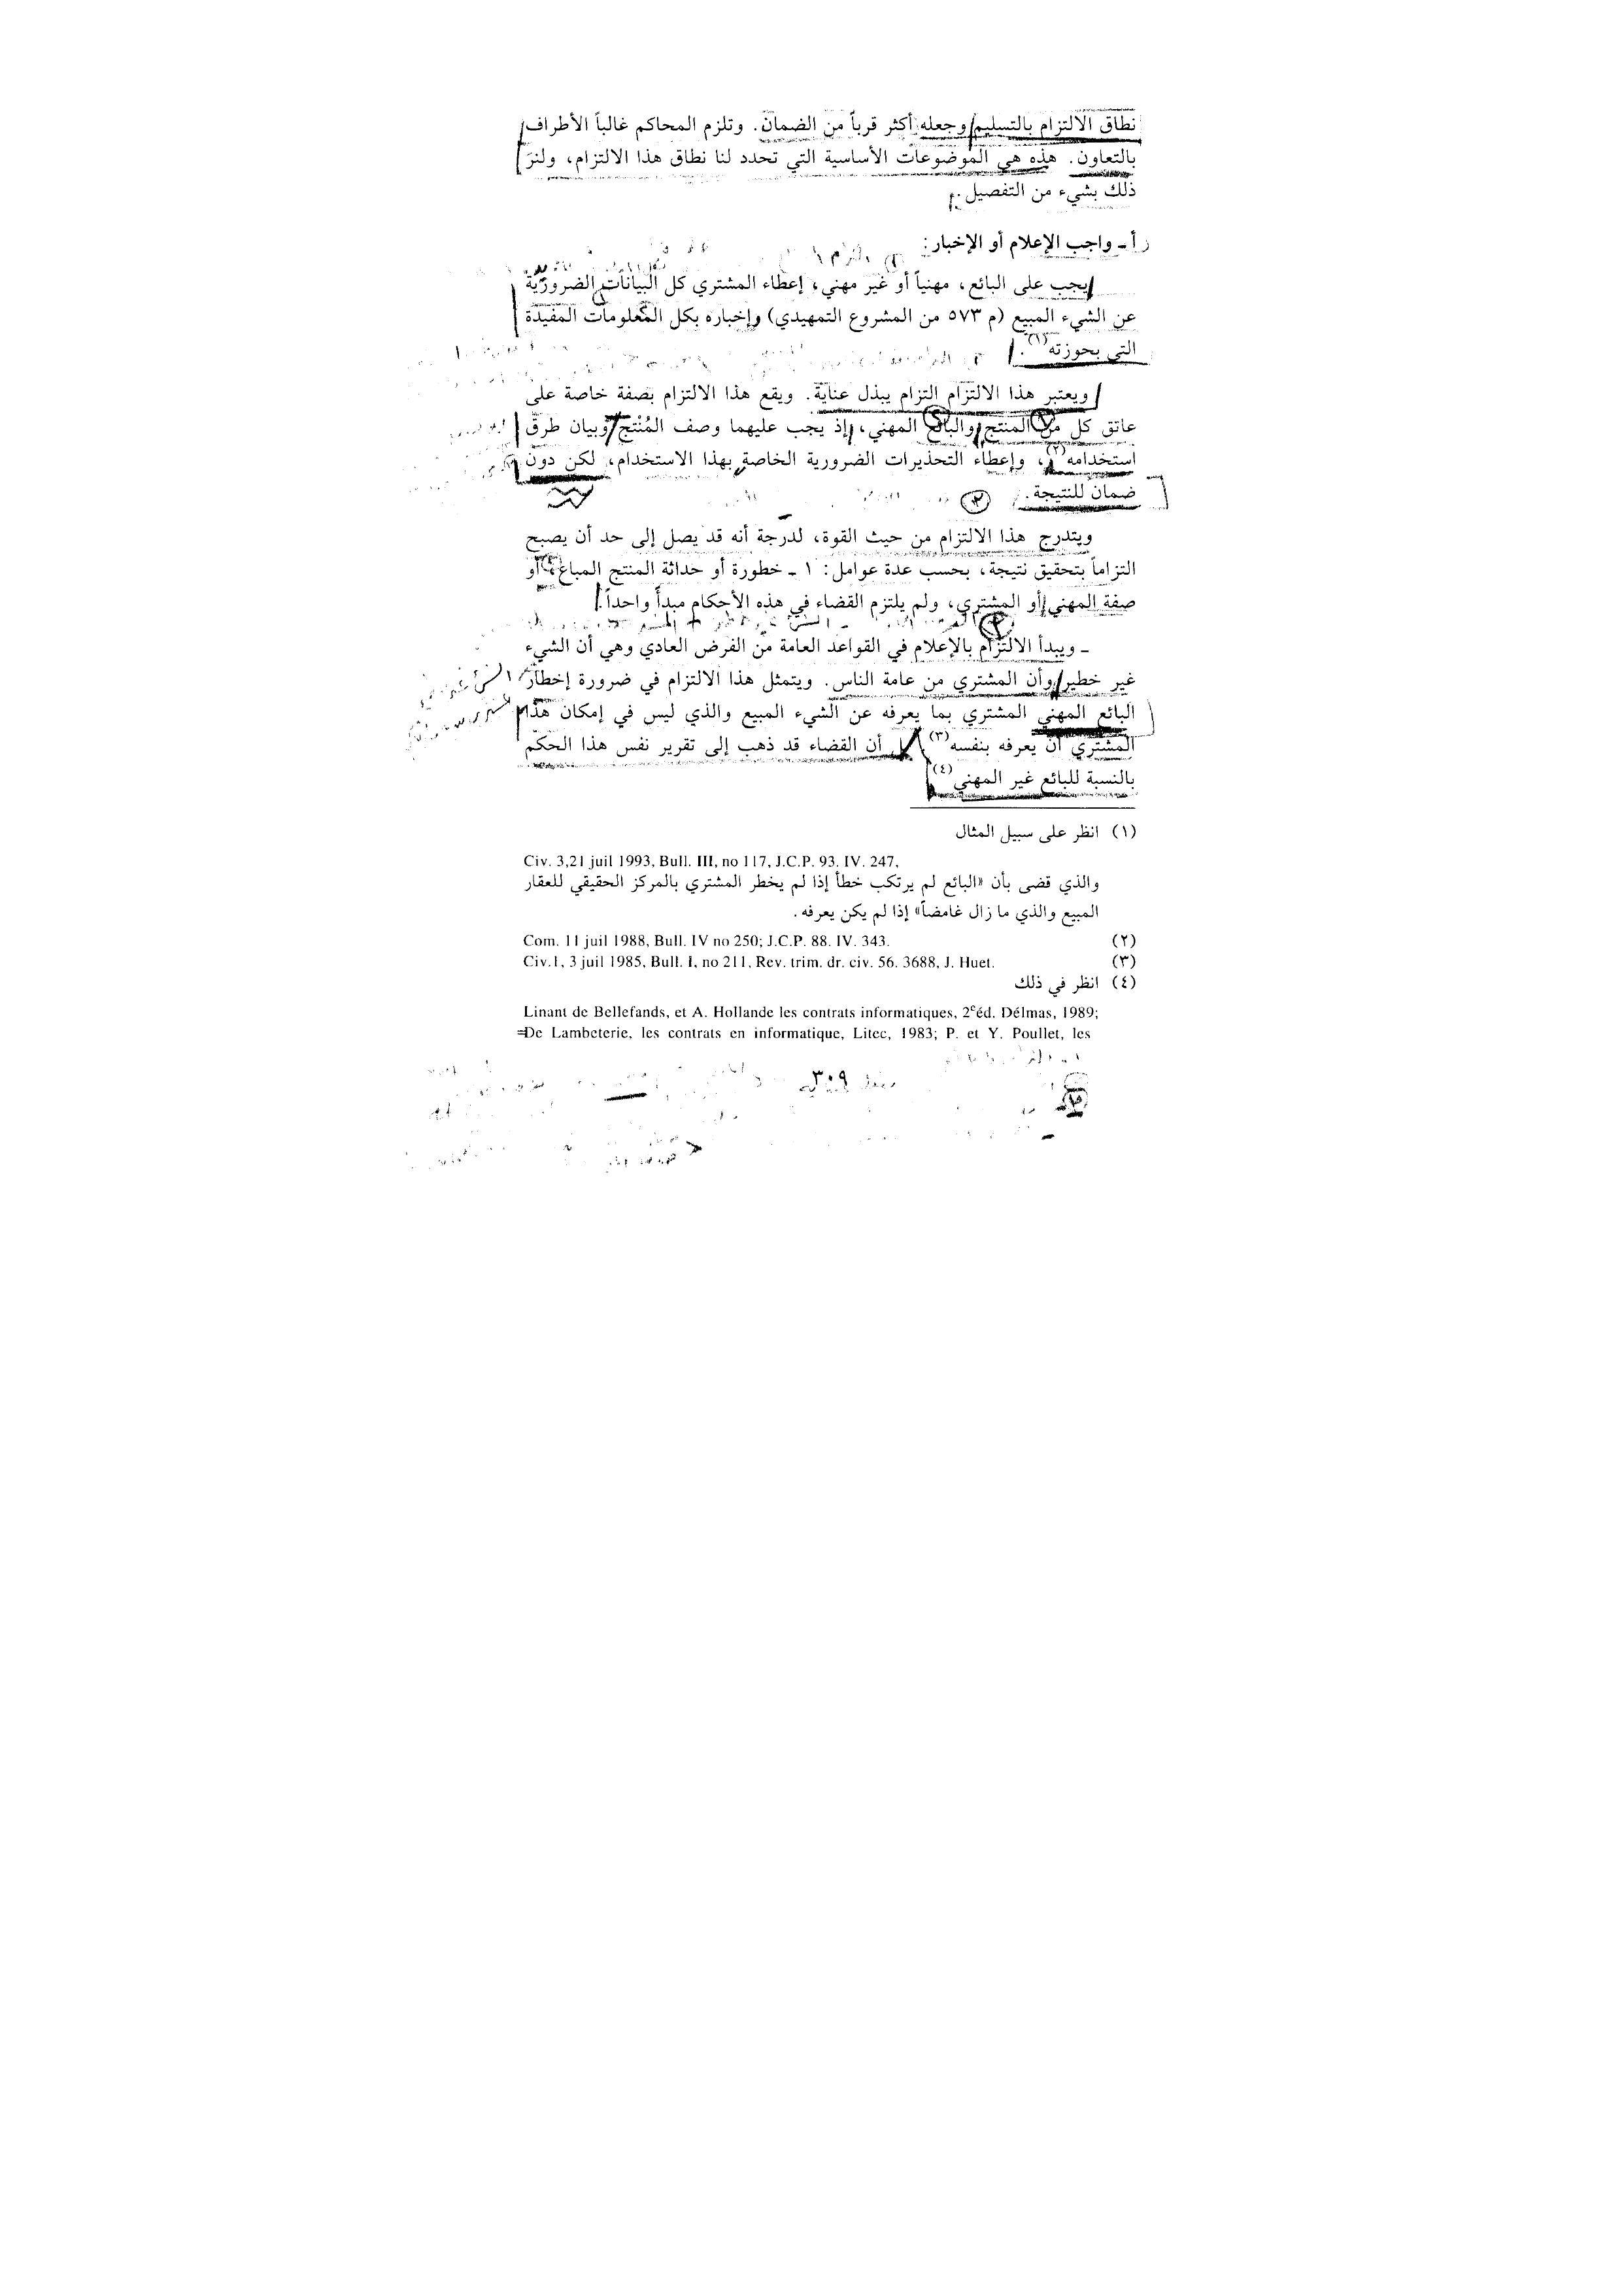 نطاق الالتزام بالتسليم وجعله أكثر قرباً من الضمان. وتلزم المحاكم غالباً الأطراف
بالتعاون. هذه هي الموضوعات الأساسية التي تحدد لنا نطاق هذا الالتزام، ولنرَ
ذلك بشيء من التفصيل.
أ ـ واجب الإعلام أو الإخبار:
يجب على البائع، مهنياً أو غير مهني، إعطاء المشتري كل البيانات الضرورية
عن الشيء المبيع (م ٥٧٣ من المشروع التمهيدي) وإخباره بكل المعلومات المفيدة
التي بحوزته(١).
ويعتبر هذا الالتزام التزام يبذل عناية. ويقع هذا الالتزام بصفة خاصة على
عاتق كل من المنتج والبائع المهني، إذ يجب عليهما وصف المُنْتج وبيان طرق
استخدامه(٢)، وإعطاء التحذيرات الضرورية الخاصة بهذا الاستخدام، لكن دون
ضمان للنتيجة.
ويتدرج هذا الالتزام من حيث القوة، لدرجة أنه قد يصل إلى حد أن يصبح
التزاماً بتحقيق نتيجة، بحسب عدة عوامل: ١ ـ خطورة أو حداثة المنتج المباع، أو
صفة المهني أو المشتري، ولم يلتزم القضاء في هذه الأحكام مبدأ واحداً.
ـ ويبدأ الالتزام بالإعلام في القواعد العامة من الفرض العادي وهي أن الشيء
غير خطير وأن المشتري من عامة الناس. ويتمثل هذا الالتزام في ضرورة إخطار
البائع المهني المشتري بما يعرفه عن الشيء المبيع والذي ليس في إمكان هذا
المشتري أن يعرفه بنفسه(٣) بل أن القضاء قد ذهب إلى تقرير نفس هذا الحكم
بالنسبة للبائع غير المهني(٤)
(١) انظر على سبيل المثال
Civ. 3,21 juil 1993, Bull. III, no 117, J.C.P. 93. IV. 247,
والذي قضى بأن «البائع لم يرتكب خطأ إذا لم يخطر المشتري بالمركز الحقيقي للعقار
المبيع والذي ما زال غامضاً» إذا لم يكن يعرفه.
(٢) Com. 11 juil 1988, Bull. IV no 250; J.C.P. 88. IV. 343.
(٣) Civ.1, 3 juil 1985, Bull. I, no 211, Rev. trim. dr. civ. 56. 3688, J. Huet.
(٤) انظر في ذلك
Linant de Bellefands, et A. Hollande les contrats informatiques, 2eéd. Délmas, 1989;
=De Lambeterie, les contrats en informatique, Litec, 1983; P. et Y. Poullet, les
٣٠٩